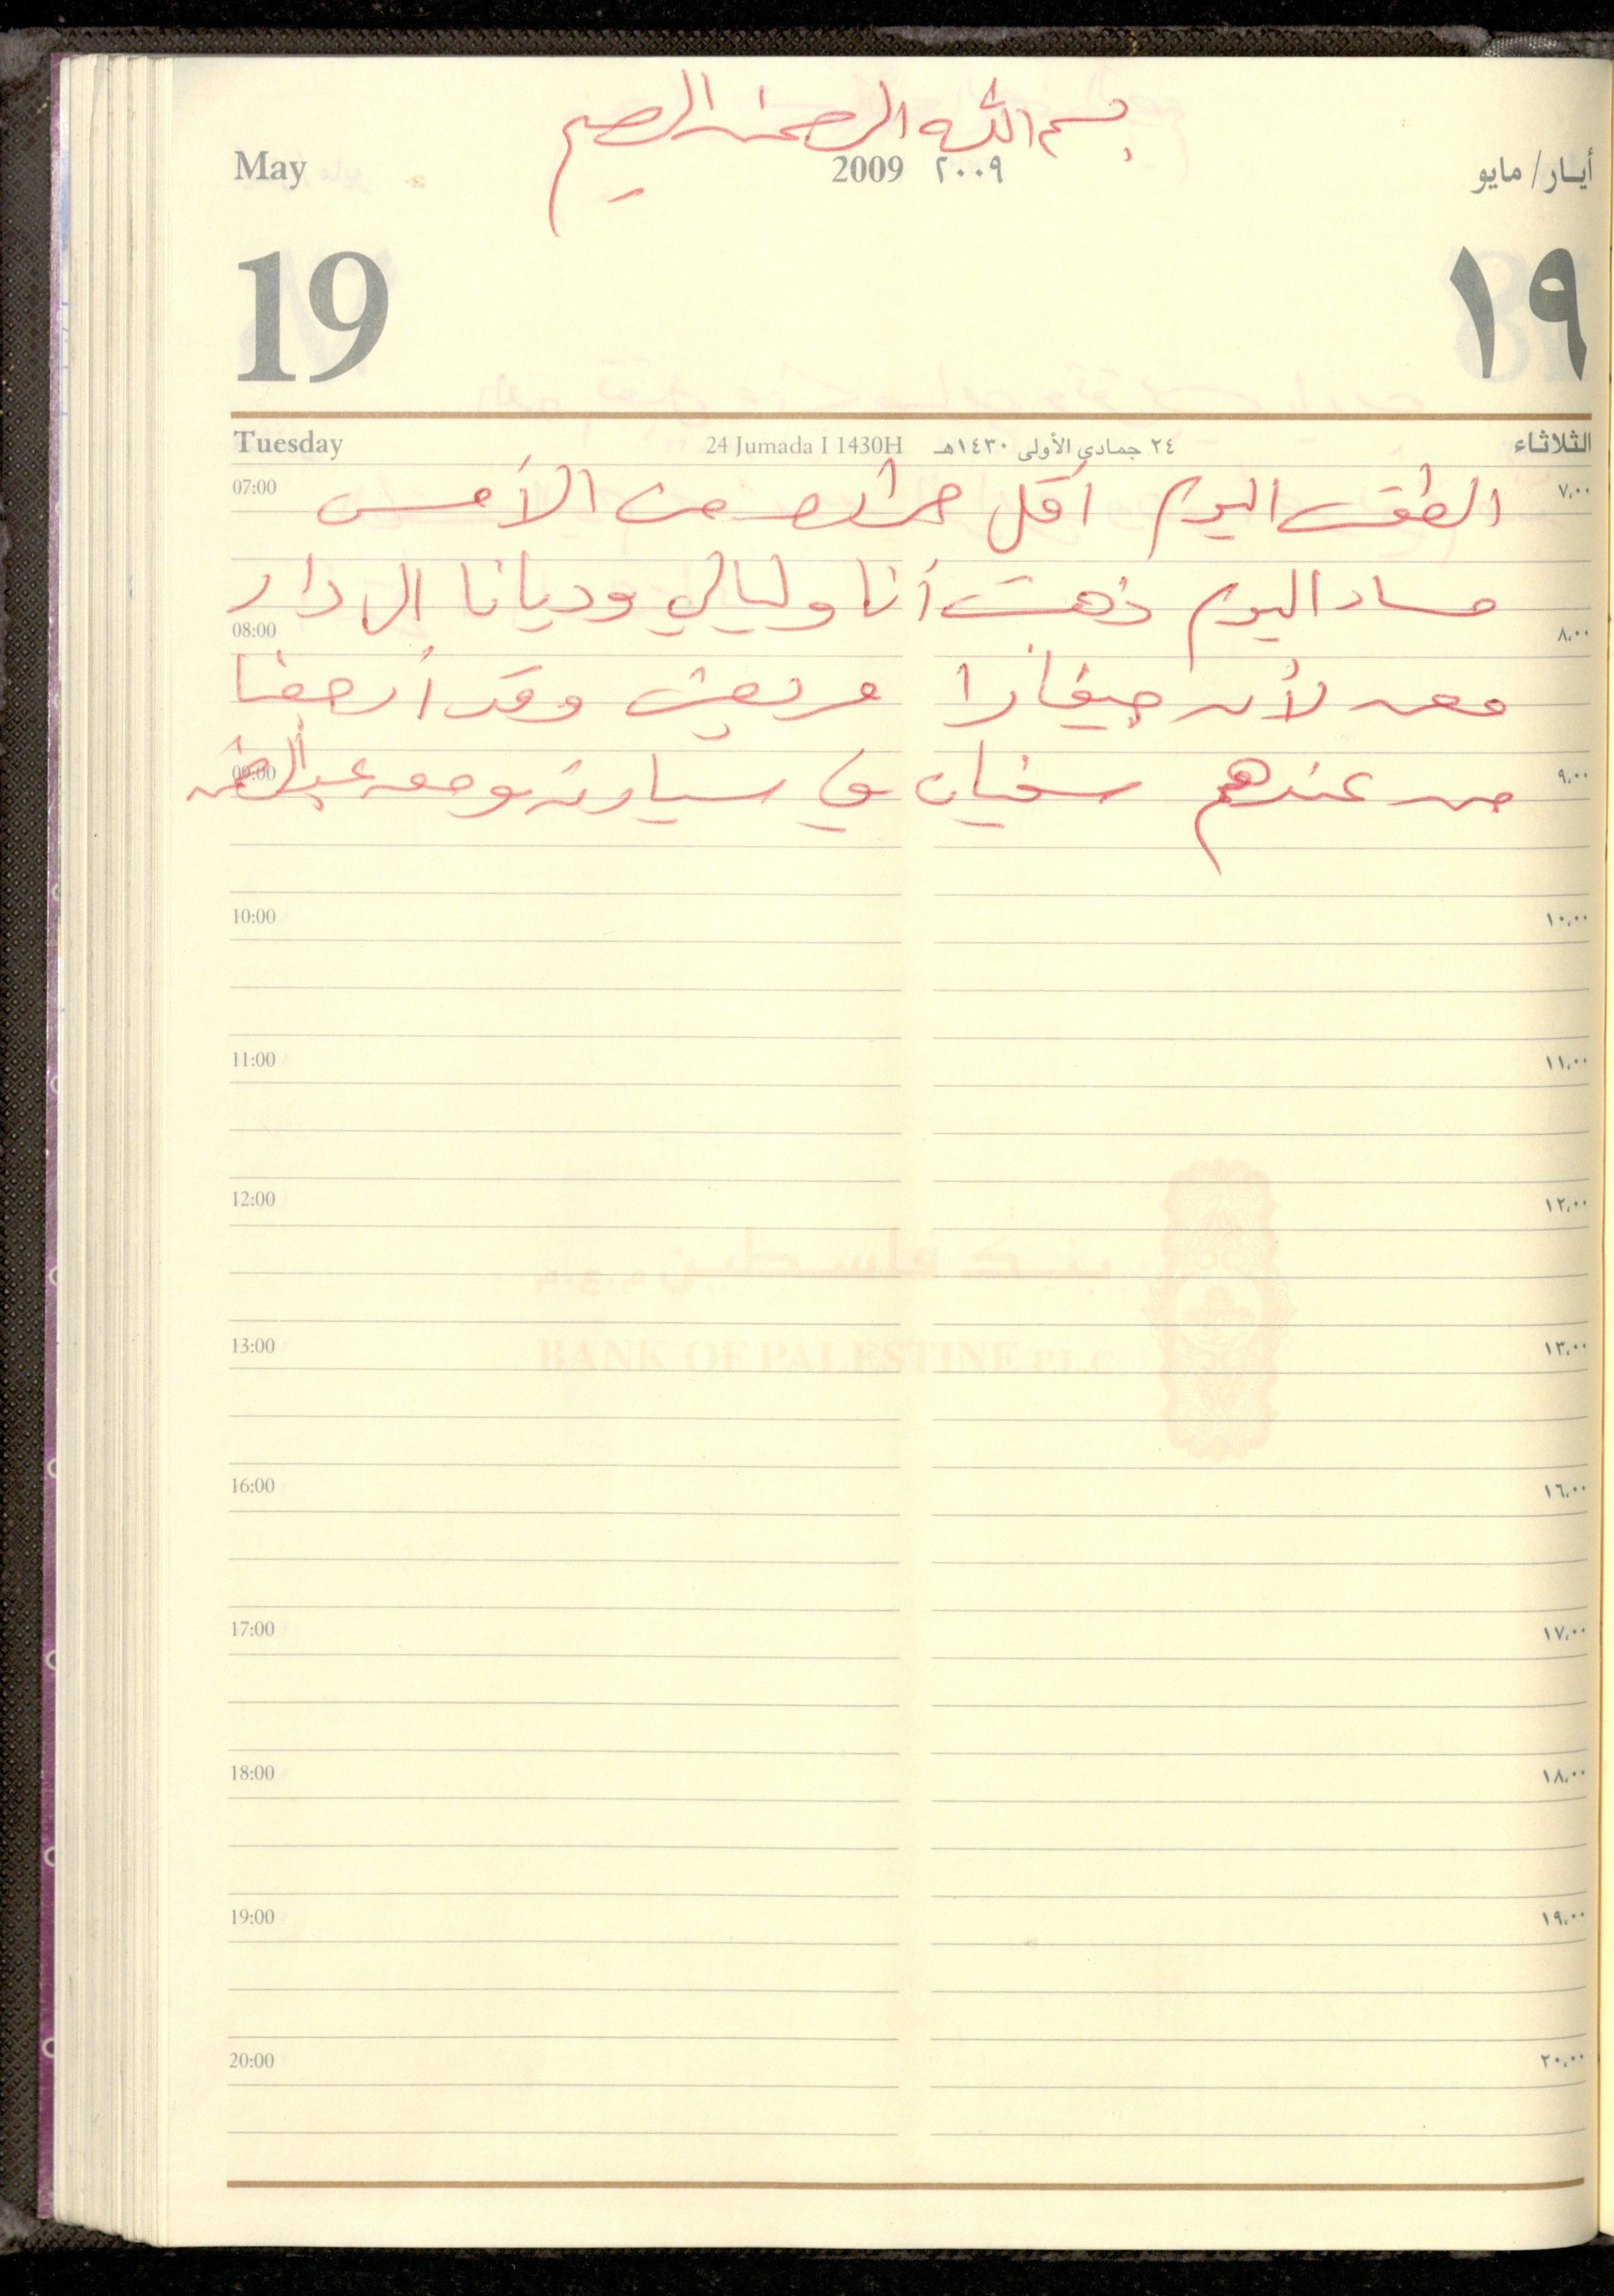 بسم الله الرحمن الرحيم
May 2009 ٢٠٠٩ أيـار/ مايو
19 ١٩
Tuesday 24 Jumada I 1430H ٢٤ جمادي الأولى ١٤٣٠هـ الثلاثاء
07:00 الطقس اليوم أقل حرارة من الأمس ٧,٠٠
مساء اليوم ذهبت أنا وليالي وديانا الى دار
08:00 ٨,٠٠
معن لأن جيفارا مريضة وقد أرجعنا
09:00 من عندهم سفيان في سيارته ومعه عبد الرحمن ٩,٠٠
10:00 ١٠,٠٠
11:00 ١١,٠٠
12:00 ١٢,٠٠
بنك فلسطين م.ع.م.
13:00 BANK OF PALESTINE P.L.C ١٣,٠٠
16:00 ١٦,٠٠
17:00 ١٧,٠٠
18:00 ١٨,٠٠
19:00 ١٩,٠٠
20:00 ٢٠,٠٠